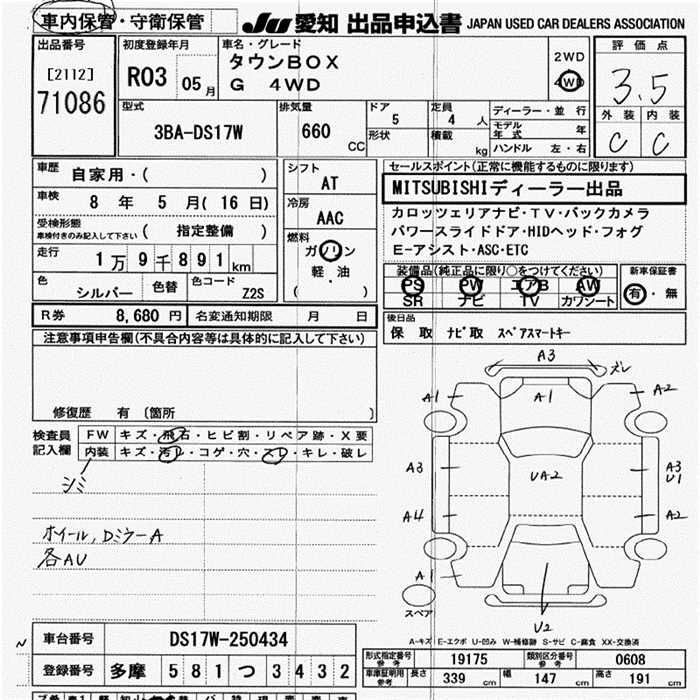 車内保管・守衛保管
JU 愛知 出品申込書 JAPAN USED CAR DEALERS ASSOCIATION
出品番号
[2112]
71086
初度登録年月
R03 05月
車名・グレード
タウンBOX
G 4WD
2WD
4WD
評価点
3.5
外装 内装
C C
型式
3BA-DS17W
排気量
660
CC
ドア
5
形状
定員
4 人
積載
kg
ディーラー・並行
モデル年式 年
ハンドル 左・右
車歴
自家用・( )
車検
8 年 5 月(16 日)
受検形態
車検付きのみ記入して下さい
( 指定整備 )
走行
1万9千891km
色
シルバー
色替
色コード
Z2S
シフト
AT
冷房
AAC
燃料
ガソリン
軽・油
( )
セールスポイント(正常に機能するものに限ります)
MITSUBISHIディーラー出品
カロッツェリアナビ・TV・バックカメラ
パワースライドドア・HIDヘッド・フォグ
E-アシスト・ASC・ETC
装備品(純正品に限り○をつけてください)
PS PW エアB AW
SR ナビ TV カワシート
新車保証書
有・無
R券 8,680 円
名変通知期限 月 日
後日品
保 取 ナビ取 スペアスマートキー
注意事項申告欄(不具合内容等は具体的に記入して下さい)
修復歴 有 〔箇所 〕
検査員
記入欄
FW キズ・飛石・ヒビ割・リペア跡・X要
内装 キズ・汚レ・コゲ・穴・スレ・キレ・破レ
シミ
ホイール,DミラーA
各AU
A3
ズレ
A1
A1
A2
A3
UA2
A3
U1
A4
A2
A1
スペア
U2
A-キズ E-エクボ U-凹み W-補修跡 S-サビ C-腐食 XX-交換済
車台番号
DS17W-250434
登録番号
多摩 581つ3432
形式指定番号
参考
19175
類別区分番号
参考
0608
車庫証明用
参考
長さ
339 cm
幅
147 cm
高さ
191 cm